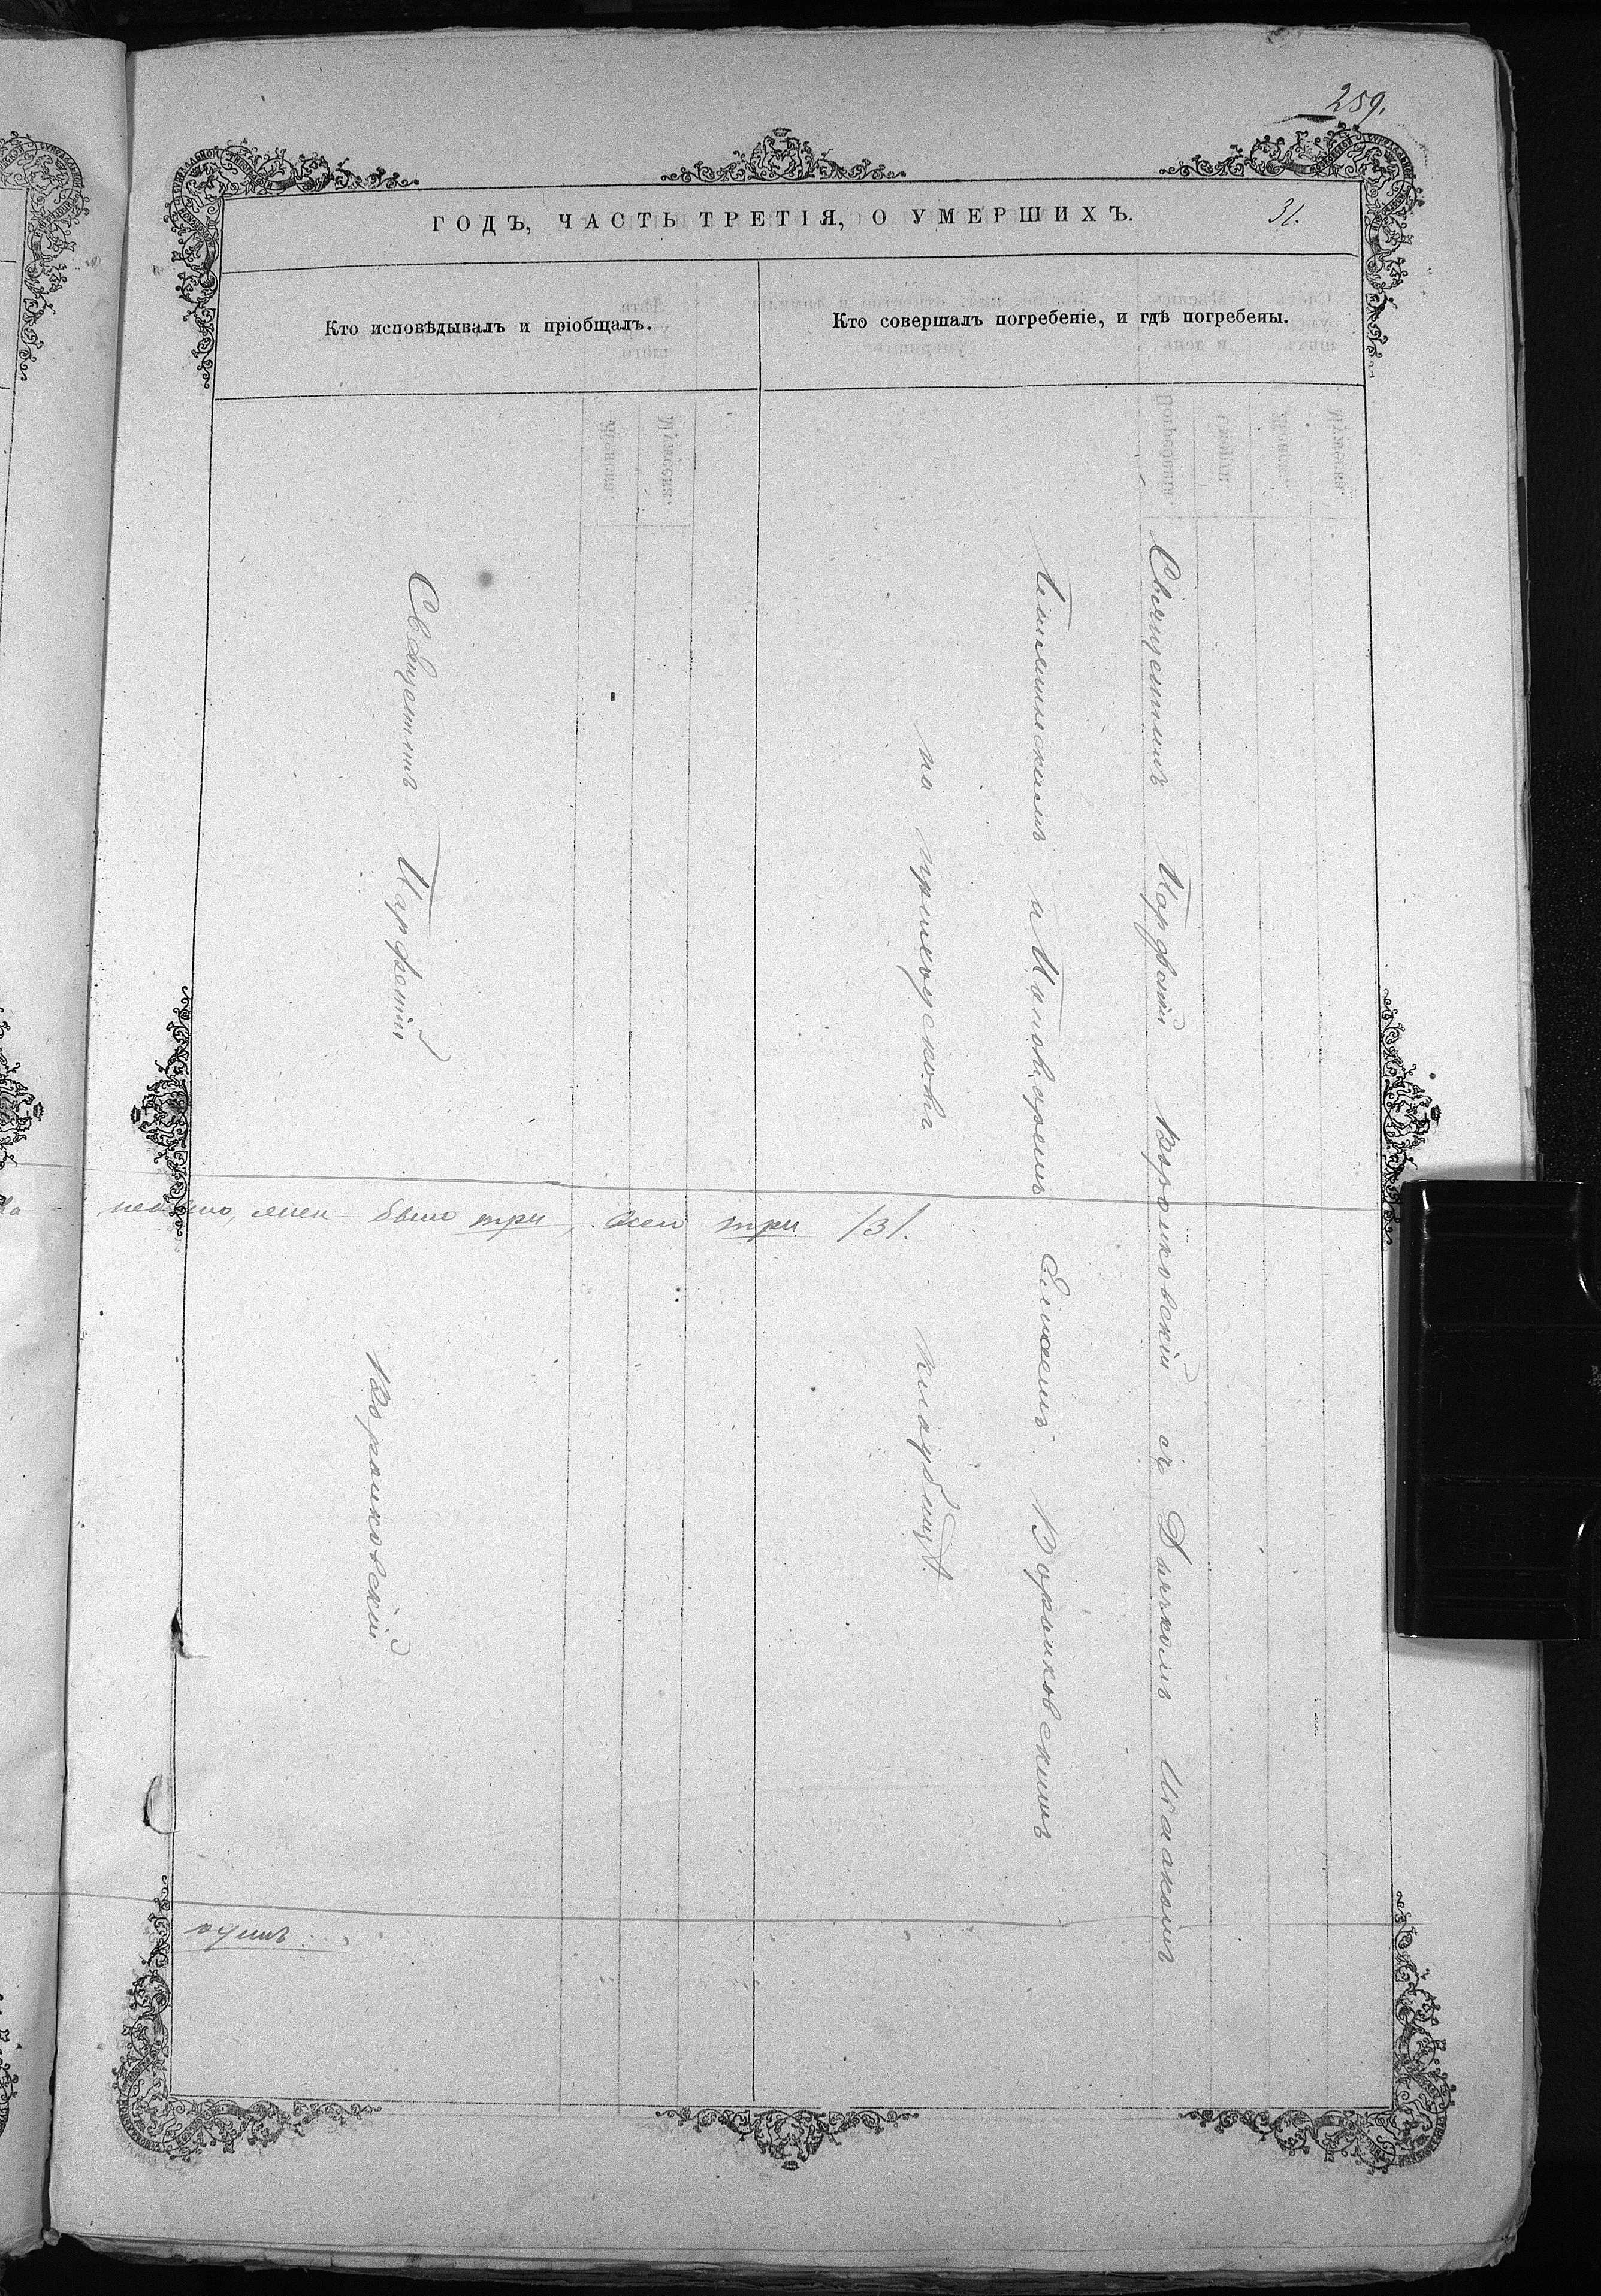 259.
ГОДЪ, ЧАСТЬ ТРЕТІЯ, О УМЕРШИХЪ.
31.
Кто исповѣдывалъ и пріобщалъ.
Кто совершалъ погребеніе, и гдѣ погребены.
Священникъ Парфеній
Воронковскій
Священникъ Парфеній Воронковскій съ Дьячкомъ Исаакомъ
и Пономаремъ Воронковскимъ
на приходскомъ кладбищѣ.
было три, всего три /3/.
одинъ